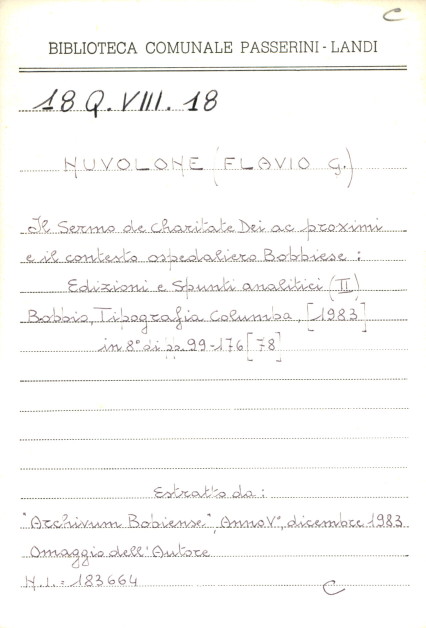 C
BIBLIOTECA COMUNALE PASSERINI - LANDI
18 Q. VIII. 18
NUVOLONE (FLAVIO G.)
Il Sermo de Charitate Dei ac proximi
e il contesto ospedaliero Bobbiese :
Edizioni e Spunti analitici (II)
Bobbio, Tipografia Columba, [1983]
in 8° di pp. 99-176 [78]
Estratto da :
"Archivum Bobiense", Anno V°, dicembre 1983
Omaggio dell'Autore
N.I. = 183664
C